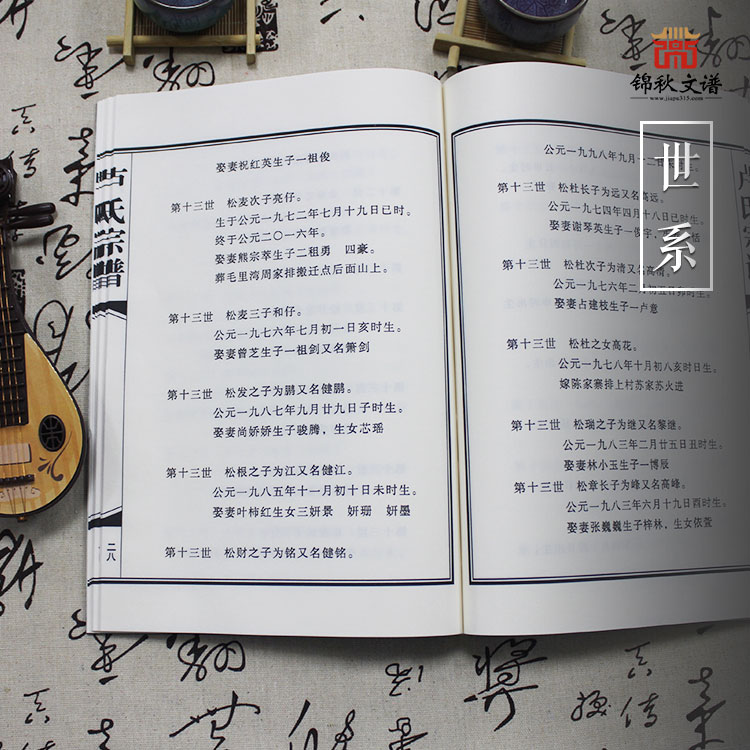 锦秋文谱
www.jiapu315.com
世系
氏宗谱
娶妻祝红英生子一祖俊
第十三世 松麦次子亮仔。
生于公元一九七二年七月十九日已时。
终于公元二〇一六年。
娶妻熊宗萃生子二租勇 四豪。
葬毛里湾周家排搬迁点后面山上。
第十三世 松麦三子和仔。
公元一九七六年七月初一日亥时生。
娶妻曾芝生子一祖剑又名箫剑
第十三世 松发之子为鹏又名健鹏。
公元一九八七年九月廿九日子时生。
娶妻尚娇娇生子骏腾，生女芯瑶
第十三世 松根之子为江又名健江。
公元一九八五年十一月初十日未时生。
娶妻叶柿红生女三妍景 妍珊 妍墨
第十三世 松财之子为铭又名健铭。
二八
公元一九九八年九月十二日
第十三世 松杜长子为远又名高远。
公元一九七四年四月十八日已时生。
娶妻谢琴英生子一俊宇，
第十三世 松杜次子为清又名高清。
公元一九七六年二月初五日卯时生。
娶妻占建枝生子一卢意
第十三世 松杜之女高花。
公元一九七八年十月初八亥时日生。
嫁陈家寨排上村苏家苏火进
第十三世 松瑞之子为继又名黎继。
公元一九八三年二月廿五日丑时生。
娶妻林小玉生子一博辰
第十三世 松章长子为峰又名高峰。
公元一九八三年六月十九日酉时生。
娶妻张巍巍生子梓林，生女依萱